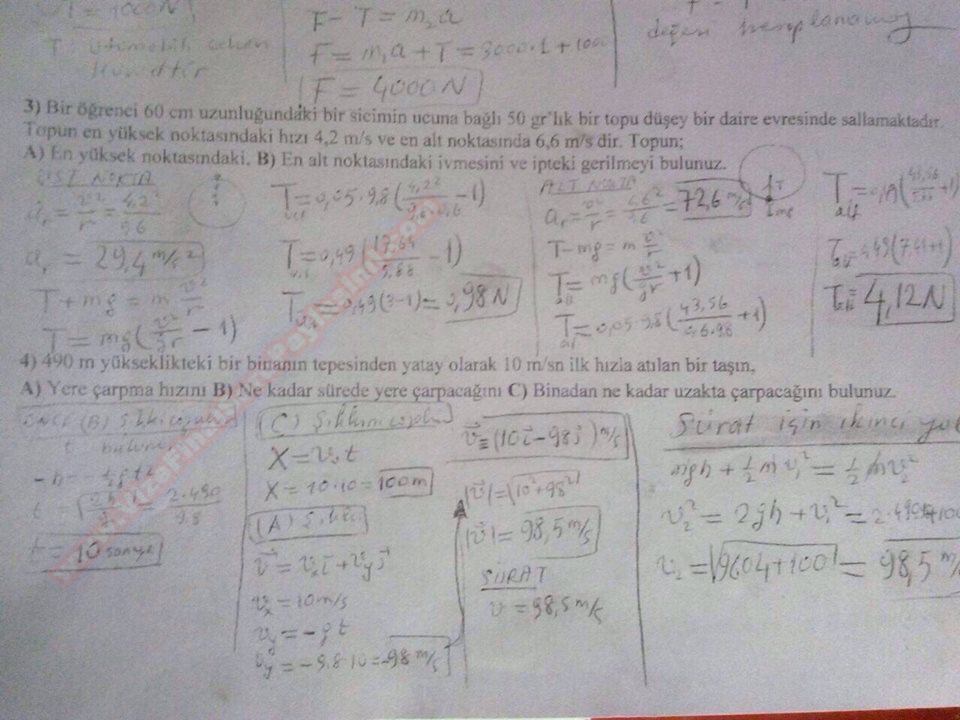 F - T = m₂a
F = m₁a + T = 3000.1 + 1000
F = 4000N
değeri hesplanamış
3) Bir öğrenci 60 cm uzunluğundaki bir sicimin ucuna bağlı 50 gr'lık bir topu düşey bir daire evresinde sallamaktadır.
Topun en yüksek noktasındaki hızı 4,2 m/s ve en alt noktasında 6,6 m/s dir. Topun;
A) En yüksek noktasındaki, B) En alt noktasındaki ivmesini ve ipteki gerilmeyi bulunuz.
ÜST NOKTA
aᵣ = v²/r = 4,2²/0,6
aᵣ = 29,4 m/s²
T + mg = m v²/r
T = mg(v²/gr - 1)
T = 0,05.9,8(4,2²/9,8.0,6 - 1)
T = 0,49(17,64/5,88 - 1)
T = 0,49(3-1) = 0,98N
ALT NOKTA
aᵣ = v²/r = 6,6²/0,6 = 72,6 m/s
T - mg = m v²/r
T = mg(v²/gr + 1)
T = 0,05.9,8(43,56/0,6.9,8 + 1)
T = 0,49(7,41+1)
T = 4,12N
4) 490 m yükseklikteki bir binanın tepesinden yatay olarak 10 m/sn ilk hızla atılan bir taşın,
A) Yere çarpma hızını B) Ne kadar sürede yere çarpacağını C) Binadan ne kadar uzakta çarpacağını bulunuz.
t = 10 saniye
X = v₀t
X = 10.10 = 100m
v = vₓi + v_y j
vₓ = 10m/s
v_y = -gt
v_y = -9.8.10 = -98 m/s
v = (10i - 98j) m/s
|v| = √10²+98²
|v| = 98,5 m/s
SÜRAT
v = 98,5 m/s
Sürat için ikinci yol
mgh + ½mv₁² = ½mv₂²
v₂² = 2gh + v₁² = 2.490
v₂ = √9604+100 = 98,5 m/